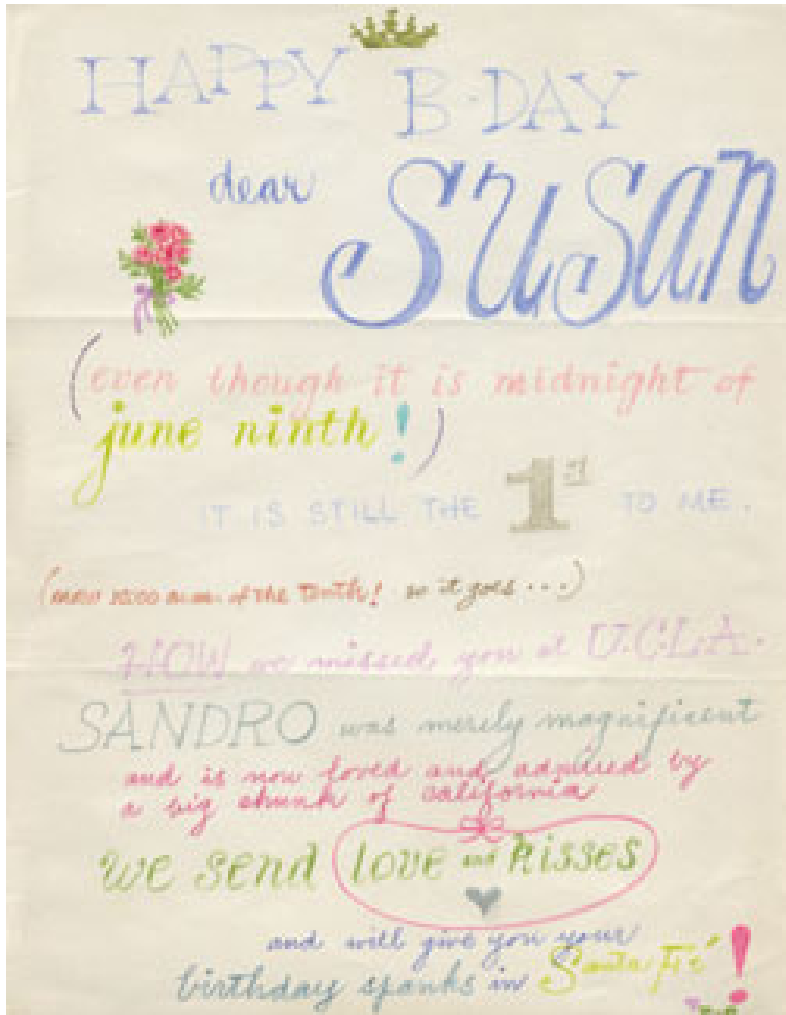 HAPPY B·DAY
dear SUSAN
(even though it is midnight of
june ninth!)
IT IS STILL THE 1ST TO ME.
(now 10:00 a.m. of the tenth! so it goes ...)
HOW we missed you at U.C.L.A.
SANDRO was merely magnificent
and is now loved and admired by
a big chunk of california
we send love and kisses
and will give you your
birthday spanks in Santa Fé!